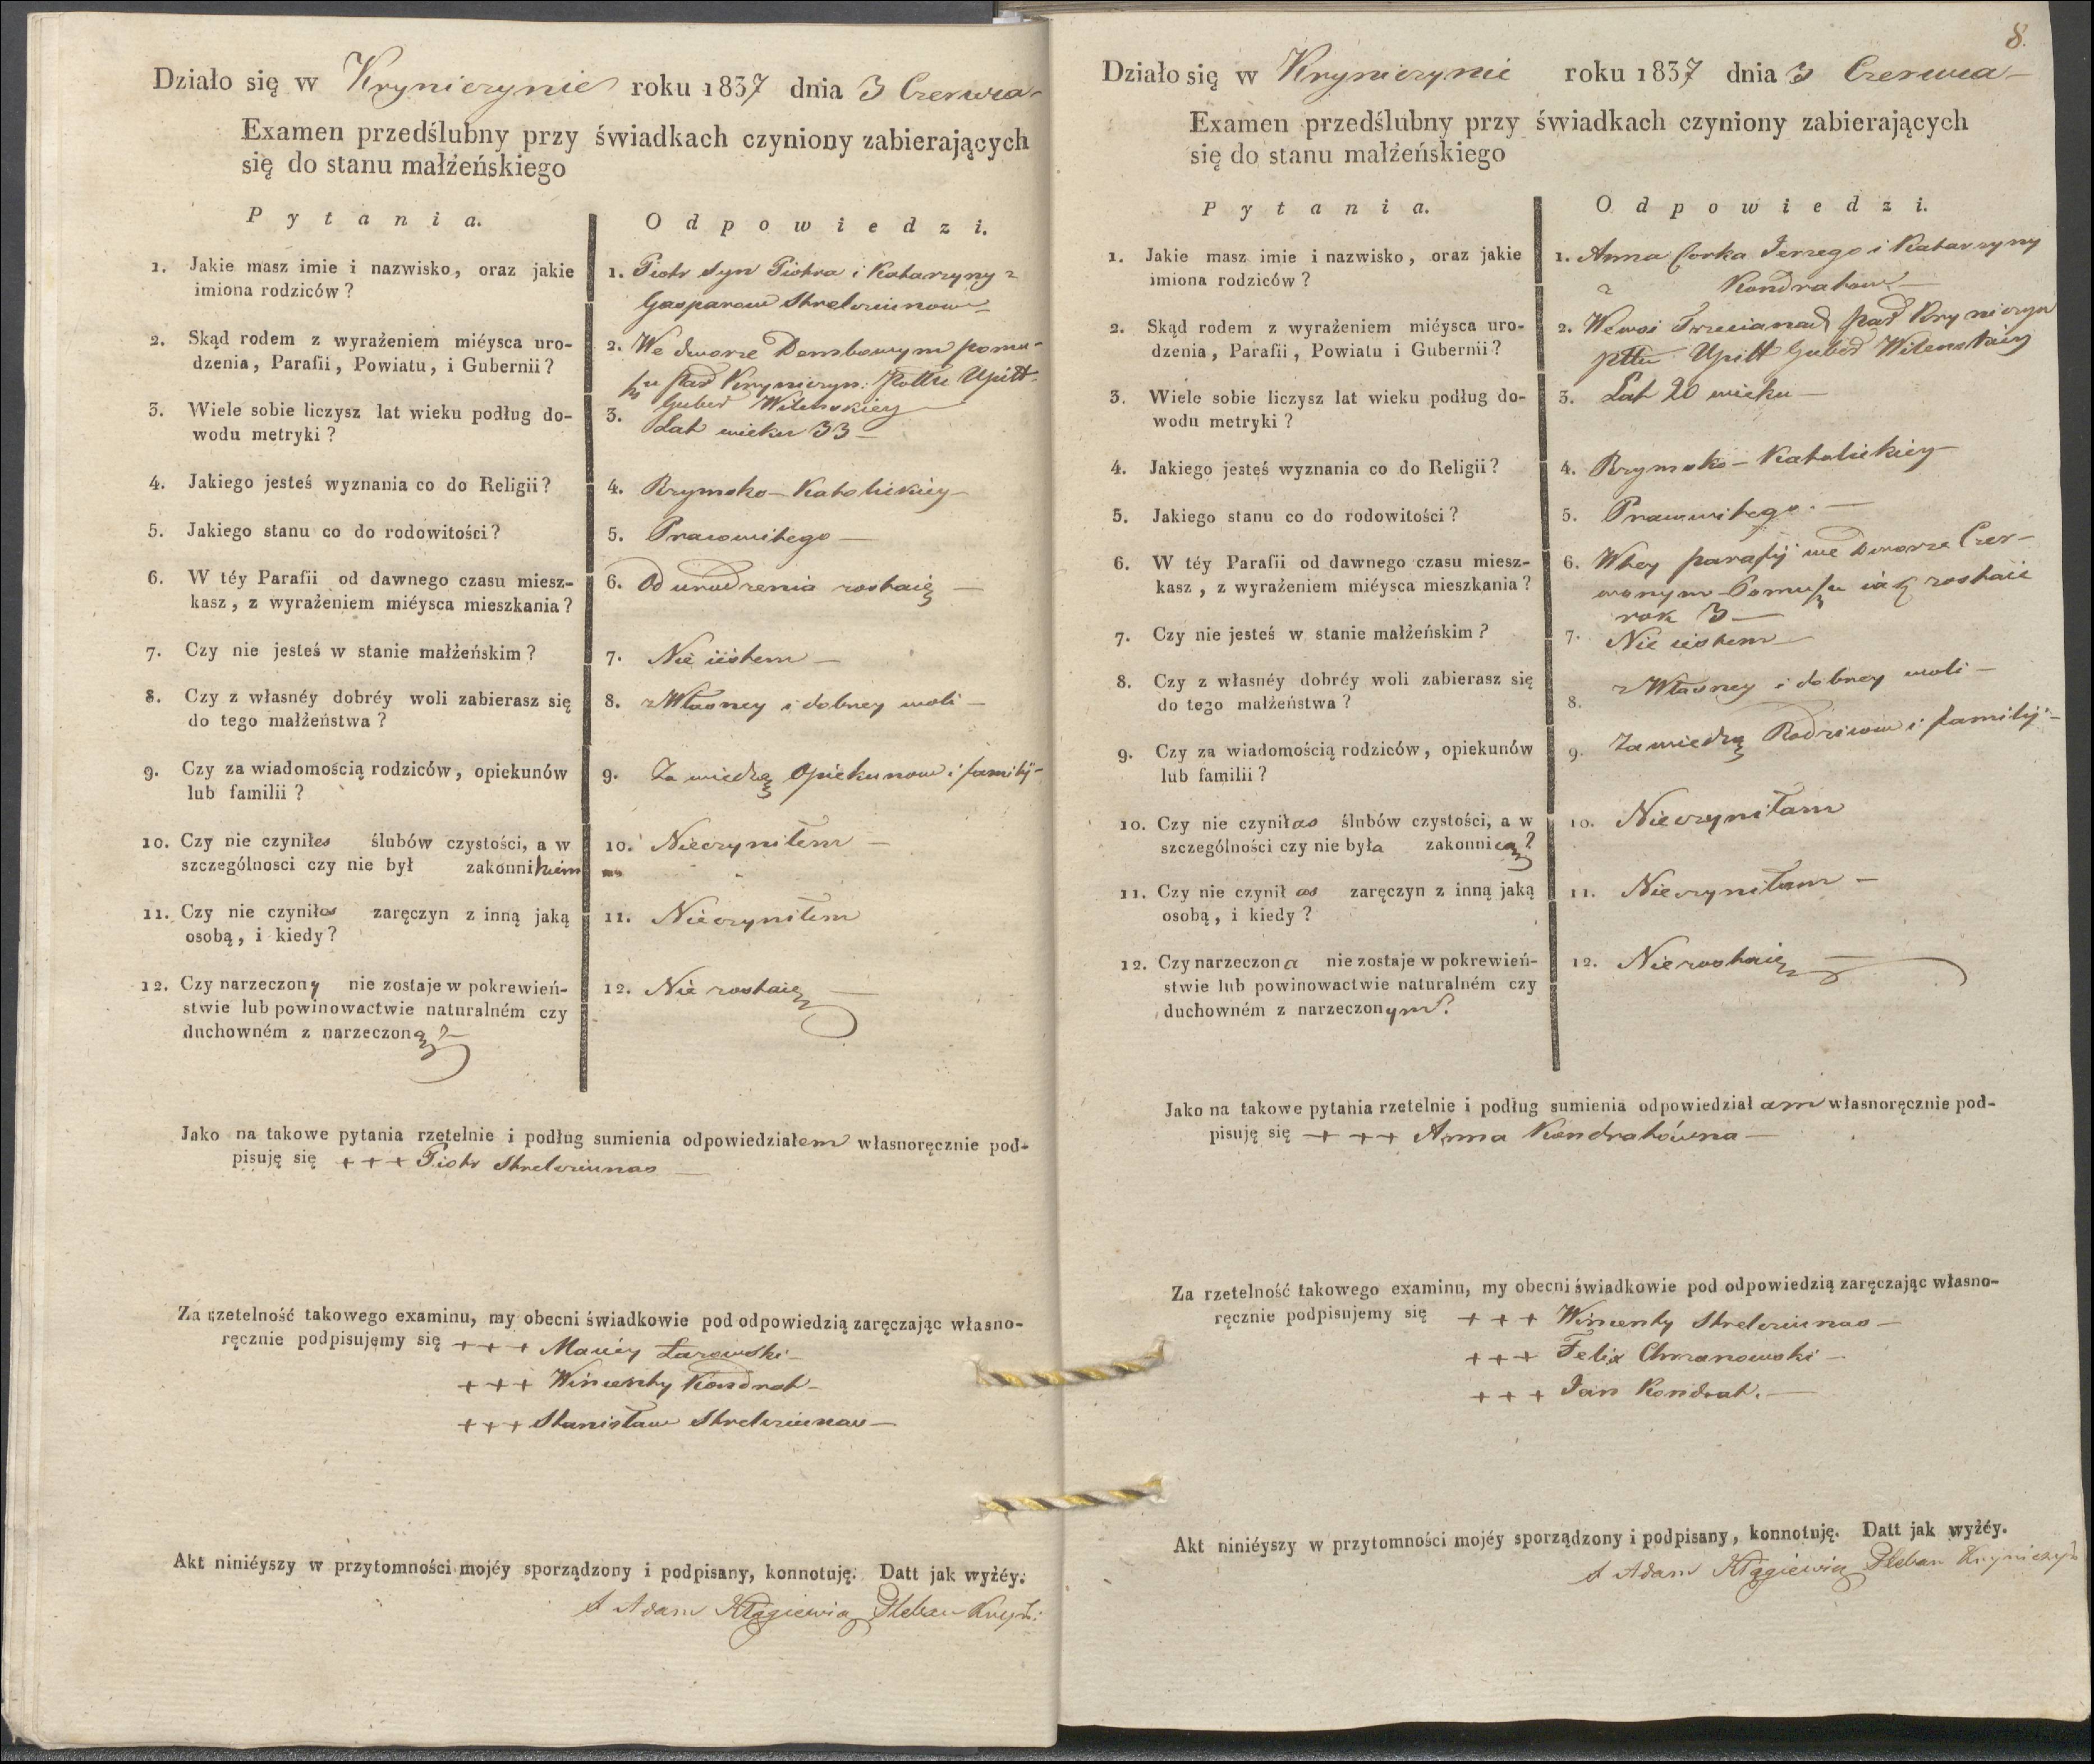 Działo się w Kryniczynie roku 1837 dnia 3 Czerwca
Examen przedślubny przy świadkach czyniony zabierających
się do stanu małżeńskiego
Pytania.
Odpowiedzi.
1. Jakie masz imie i nazwisko, oraz jakie
imiona rodziców?
1. Piotr Syn Piotra i Katarzyny z
Gasparow Strelciunow
2. Skąd rodem z wyrażeniem miéysca uro-
dzenia, Parafii, Powiatu, i Gubernii?
2. We dworze Dembowym pomu-
szu Par Kryniczyn: Pottu Upitt:
Guber Wileńskiey
3. Wiele sobie liczysz lat wieku podług do-
wodu metryki?
3. Lat wieku 33
4. Jakiego jesteś wyznania co do Religii?
4. Rzymsko-Katolickiey
5. Jakiego stanu co do rodowitości?
5. Prawowitego
6. W téy Parafii od dawnego czasu miesz-
kasz, z wyrażeniem miéysca mieszkania?
6. Od urodzenia zostaię
7. Czy nie jesteś w stanie małżeńskim?
7. Nie iestem
8. Czy z własnéy dobréy woli zabierasz się
do tego małżeństwa?
8. z Własney i dobrey woli
9. Czy za wiadomością rodziców, opiekunów
lub familii?
9. Za wiedzą Opiekunow i familij
10. Czy nie czyniłes ślubów czystości, a w
szczególnosci czy nie był zakonnikiem
10. Nieczyniłem
11. Czy nie czyniłos zaręczyn z inną jaką
osobą, i kiedy?
11. Nieczyniłem
12. Czy narzeczony nie zostaje w pokrewień-
stwie lub powinowactwie naturalném czy
duchowném z narzeczoną?
12. Nie zostaię
Jako na takowe pytania rzetelnie i podług sumienia odpowiedziałem własnoręcznie pod-
pisuję się +++ Piotr Strelciunas
Za rzetelność takowego examinu, my obecni świadkowie pod odpowiedzią zaręczając własno-
ręcznie podpisujemy się +++ Maciey Łazowski
+++ Wincenty Kondrat
+++ Stanisław Strelciunas
Akt niniéyszy w przytomności mojéy sporządzony i podpisany, konnotuję. Datt jak wyżéy.
X Adam Pleban
8.
Działo się w Kryniczynie roku 1837 dnia 3 Czerwca
Examen przedślubny przy świadkach czyniony zabierających
się do stanu małżeńskiego
Pytania.
Odpowiedzi.
1. Jakie masz imie i nazwisko, oraz jakie
imiona rodziców?
1. Anna Corka Jerzego i Katarzyny
z Kondratow
2. Skąd rodem z wyrażeniem miéysca uro-
dzenia, Parafii, Powiatu i Gubernii?
2. We wsi Par Kryniczyn
pttu Upitt Guber Wileńskiey
3. Wiele sobie liczysz lat wieku podług do-
wodu metryki?
3. Lat 20 wieku
4. Jakiego jesteś wyznania co do Religii?
4. Rzymsko-Katolickiey
5. Jakiego stanu co do rodowitości?
5. Prawowitego.
6. W téy Parafii od dawnego czasu miesz-
kasz, z wyrażeniem miéysca mieszkania?
6. Wtey parafij we Dworze Czer-
wonym-Pomuszu iak zostaie
rok 3
7. Czy nie jesteś w stanie małżeńskim?
7. Nie iestem
8. Czy z własnéy dobréy woli zabierasz się
do tego małżeństwa?
8. z Własney i dobrey woli
9. Czy za wiadomością rodziców, opiekunów
lub familii?
9. Za wiedzą Rodzicow i familij
10. Czy nie czyniłas ślubów czystości, a w
szczególności czy nie była zakonnicą?
10. Nieczyniłam
11. Czy nie czynił as zaręczyn z inną jaką
osobą, i kiedy?
11. Nieczyniłam
12. Czy narzeczona nie zostaje w pokrewień-
stwie lub powinowactwie naturalném czy
duchowném z narzeczonym?
12. Niezostaię
Jako na takowe pytania rzetelnie i podług sumienia odpowiedział am własnoręcznie pod-
pisuję się +++ Anna Kondratówna
Za rzetelność takowego examinu, my obecni świadkowie pod odpowiedzią zaręczając własno-
ręcznie podpisujemy się +++ Wincenty Strelciunas
+++ Felix Chrzanowski
+++ Jan Kondrat.
Akt niniéyszy w przytomności mojéy sporządzony i podpisany, konnotuję. Datt jak wyżéy.
X Adam Pleban